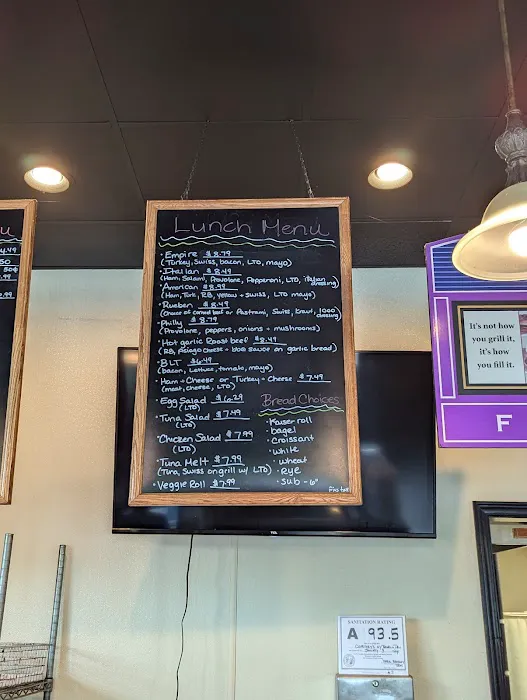 Lunch Menu
• Empire $8.79
(Turkey, Swiss, bacon, LTO, mayo)
• Italian $8.49
(Ham, Salami, Provolone, Pepperoni, LTO, italian dressing)
• American $8.99
(Ham, Turk, RB, yellow + swiss, LTO mayo)
• Rueben $8.49
(Choice of corned beef or Pastrami, Swiss, kraut, 1000 dressing)
• Philly $8.79
(Provolone, peppers, onions + mushrooms)
• Hot garlic Roast beef $8.49
(RB, Asiago Cheese + sauce on garlic bread)
• BLT $6.49
(bacon, Lettuce, tomato, mayo)
• Ham + Cheese or Turkey + Cheese $7.49
(meat, cheese, LTO)
• Egg Salad $6.29
(LTO)
• Tuna Salad $7.49
(LTO)
• Chicken Salad $7.99
(LTO)
• Tuna Melt $7.99
(Tuna, Swiss on grill w/ LTO)
• Veggie Roll $7.99
Bread Choices
• Kaiser roll
• bagel
• Croissant
• white
• wheat
• Rye
• Sub - 6"
Plus tax
It's not how
you grill it,
it's how
you fill it.
F
TCL
SANITATION RATING
A 93.5